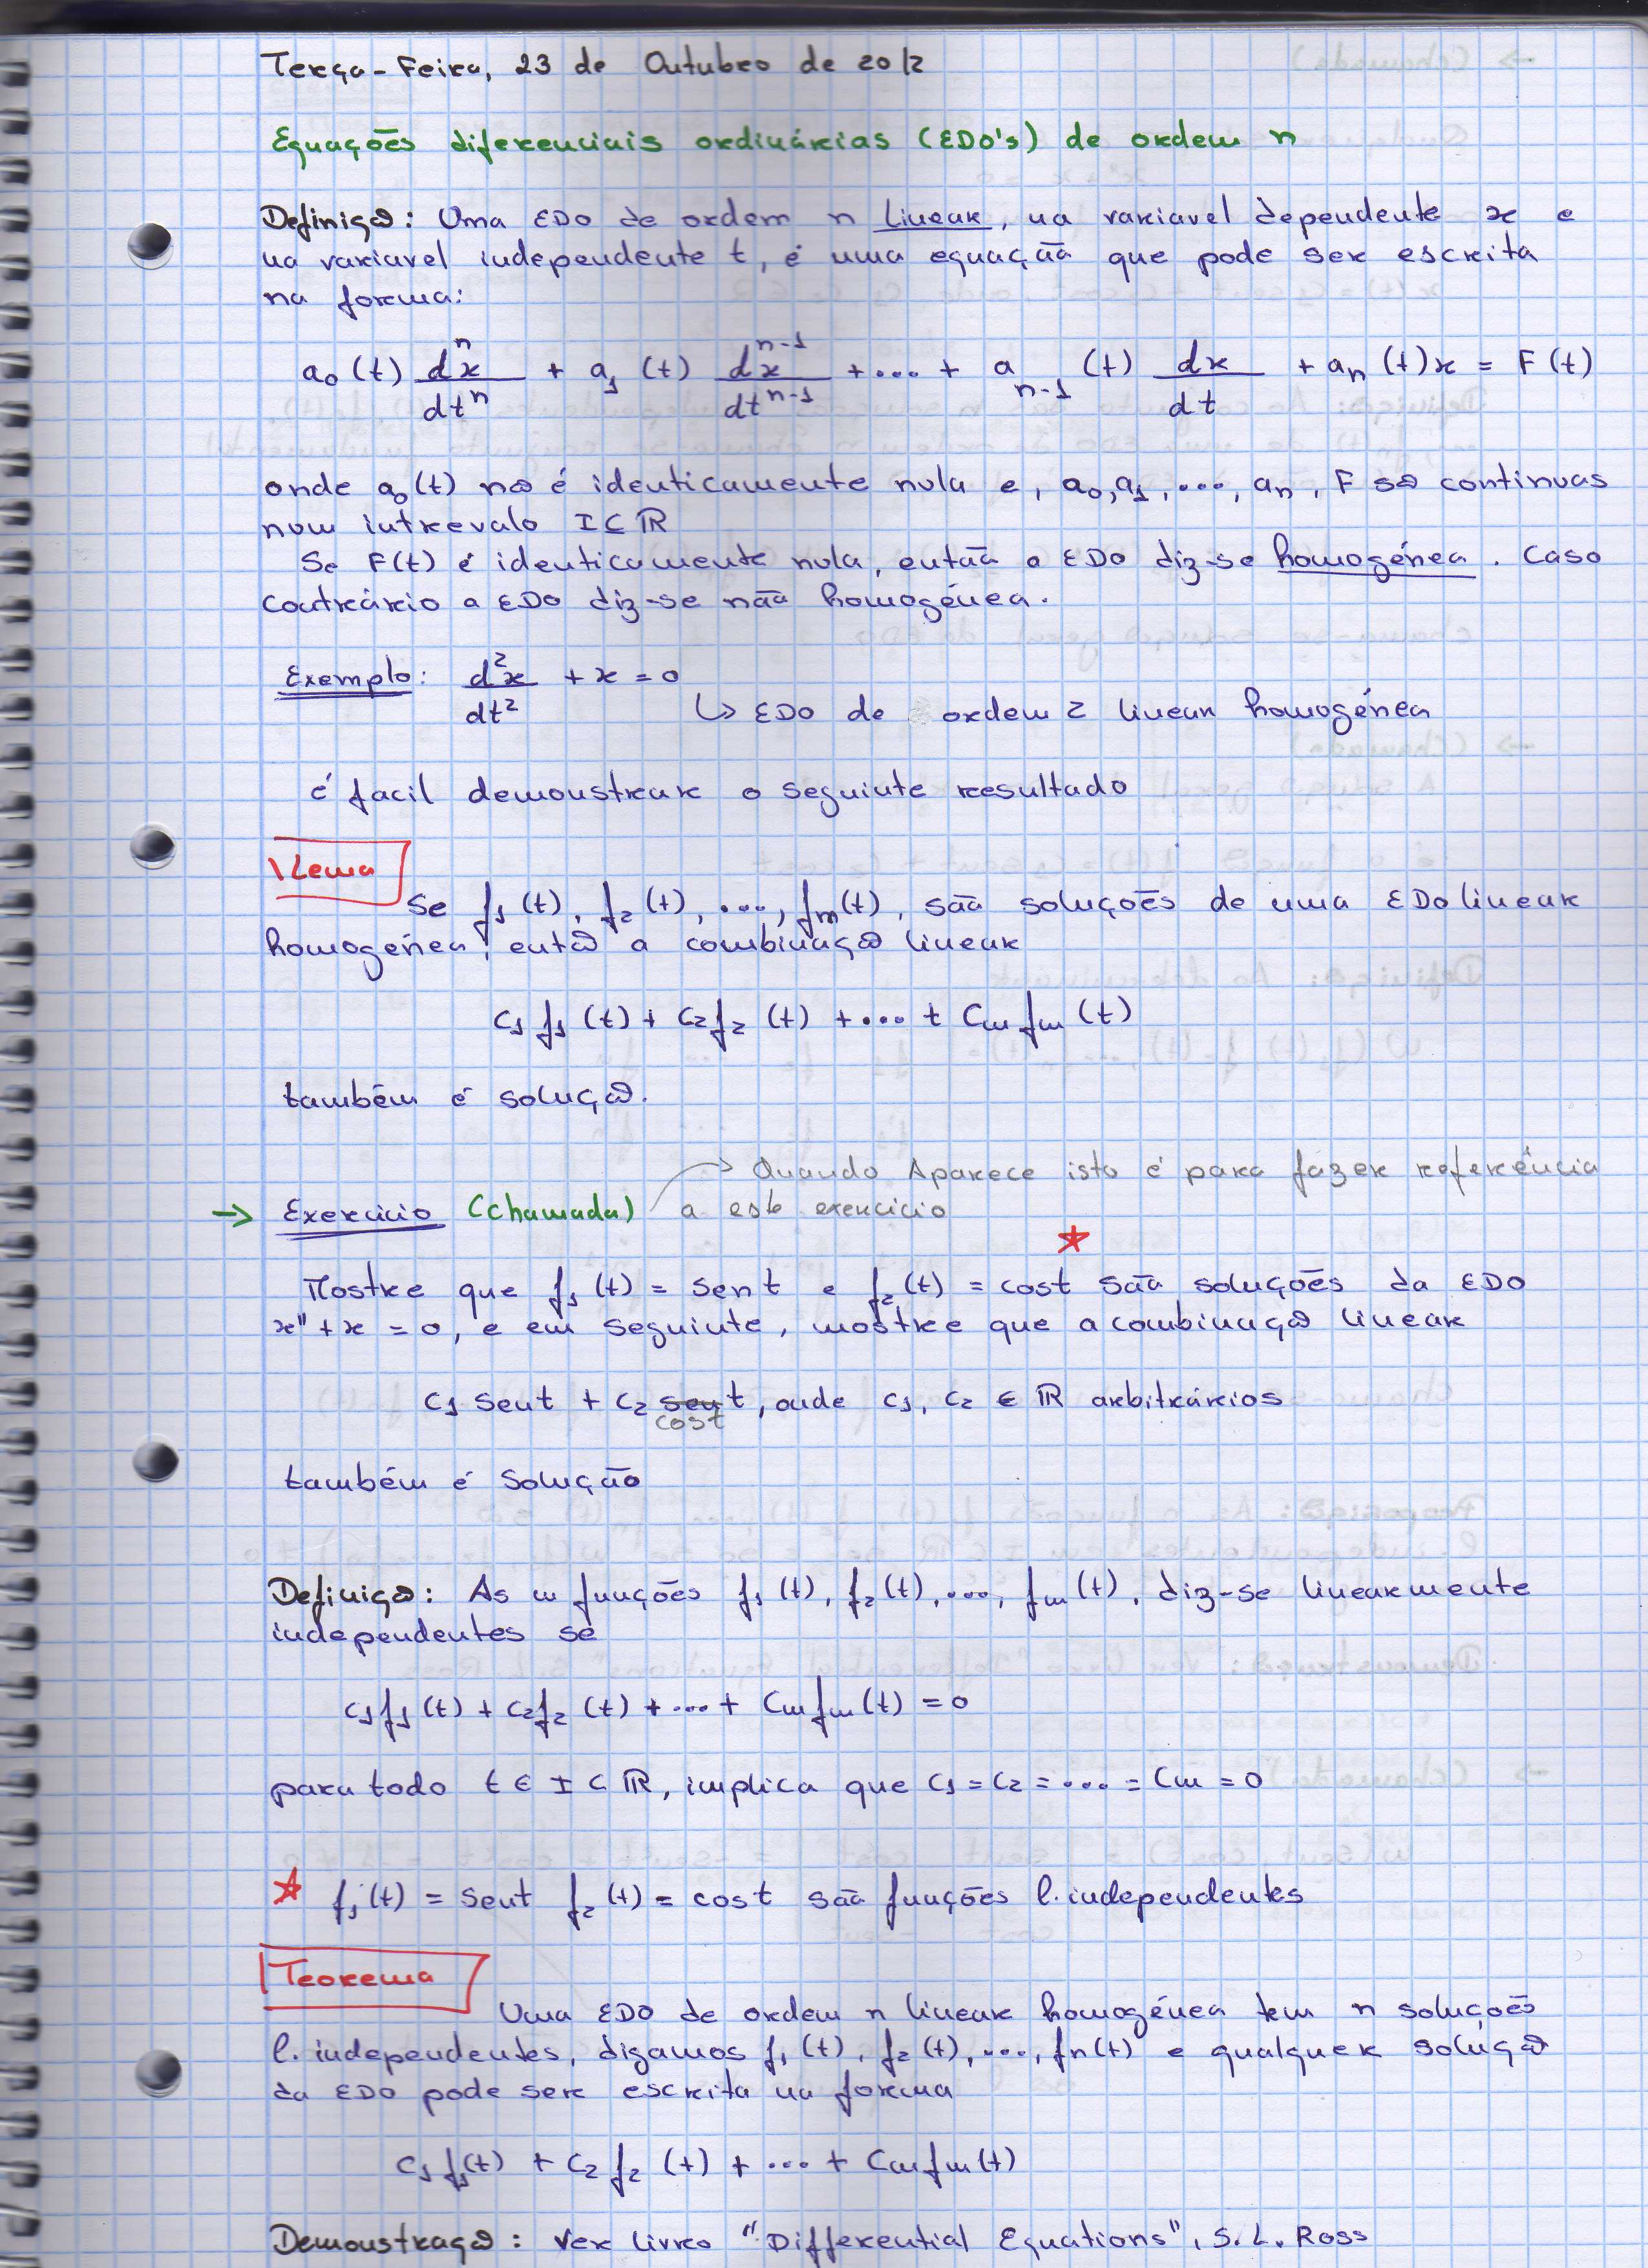 Terça-Feira, 23 de Outubro de 2012
Equações diferenciais ordinárias (EDO's) de ordem n
Definição: Uma EDO de ordem n linear, na variavel dependente x e
na variavel independente t, é uma equação que pode ser escrita
na forma:
a₀(t) dⁿx/dtⁿ + a₁(t) dⁿ⁻¹x/dtⁿ⁻¹ + ... + aₙ₋₁(t) dx/dt + aₙ(t)x = F(t)
onde a₀(t) não é identicamente nula e, a₀,a₁,...,aₙ, F são continuas
num intrevalo I ⊆ ℝ
Se F(t) é identicamente nula, então a EDO diz-se homogénea. Caso
contrário a EDO diz-se não homogénea.
Exemplo: d²x/dt² + x = 0
↳ EDO de ordem 2 linear homogénea
é facil demonstrar o seguinte resultado
Lema
Se f₁(t), f₂(t), ..., fₘ(t), são soluções de uma EDO linear
homogénea, então a combinação linear
c₁f₁(t) + c₂f₂(t) + ... + cₘfₘ(t)
também é solução.
→ Quando Aparece isto é para fazer referência
→ Exercicio (chamada) a este exercicio
Mostre que f₁(t) = sent e f₂(t) = cost são soluções da EDO
x'' + x = 0, e em seguinte, mostre que a combinação linear
c₁ sent + c₂ sent, onde c₁, c₂ ∈ ℝ arbitrários
cost
também é solução
Definição: As m funções f₁(t), f₂(t), ..., fₘ(t), diz-se linearmente
independentes se
c₁f₁(t) + c₂f₂(t) + ... + cₘfₘ(t) = 0
para todo t ∈ I ⊂ ℝ, implica que c₁ = c₂ = .... = cₘ = 0
★ f₁(t) = sent f₂(t) = cost são funções l. independentes
Teorema
Uma EDO de ordem n linear homogénea tem n soluções
l. independentes, digamos f₁(t), f₂(t), ..., fₙ(t) e qualquer solução
da EDO pode ser escrita na forma
c₁f₁(t) + c₂f₂(t) + ... + cₘfₘ(t)
Demonstração: Ver livro "Differential Equations", S.L. Ross